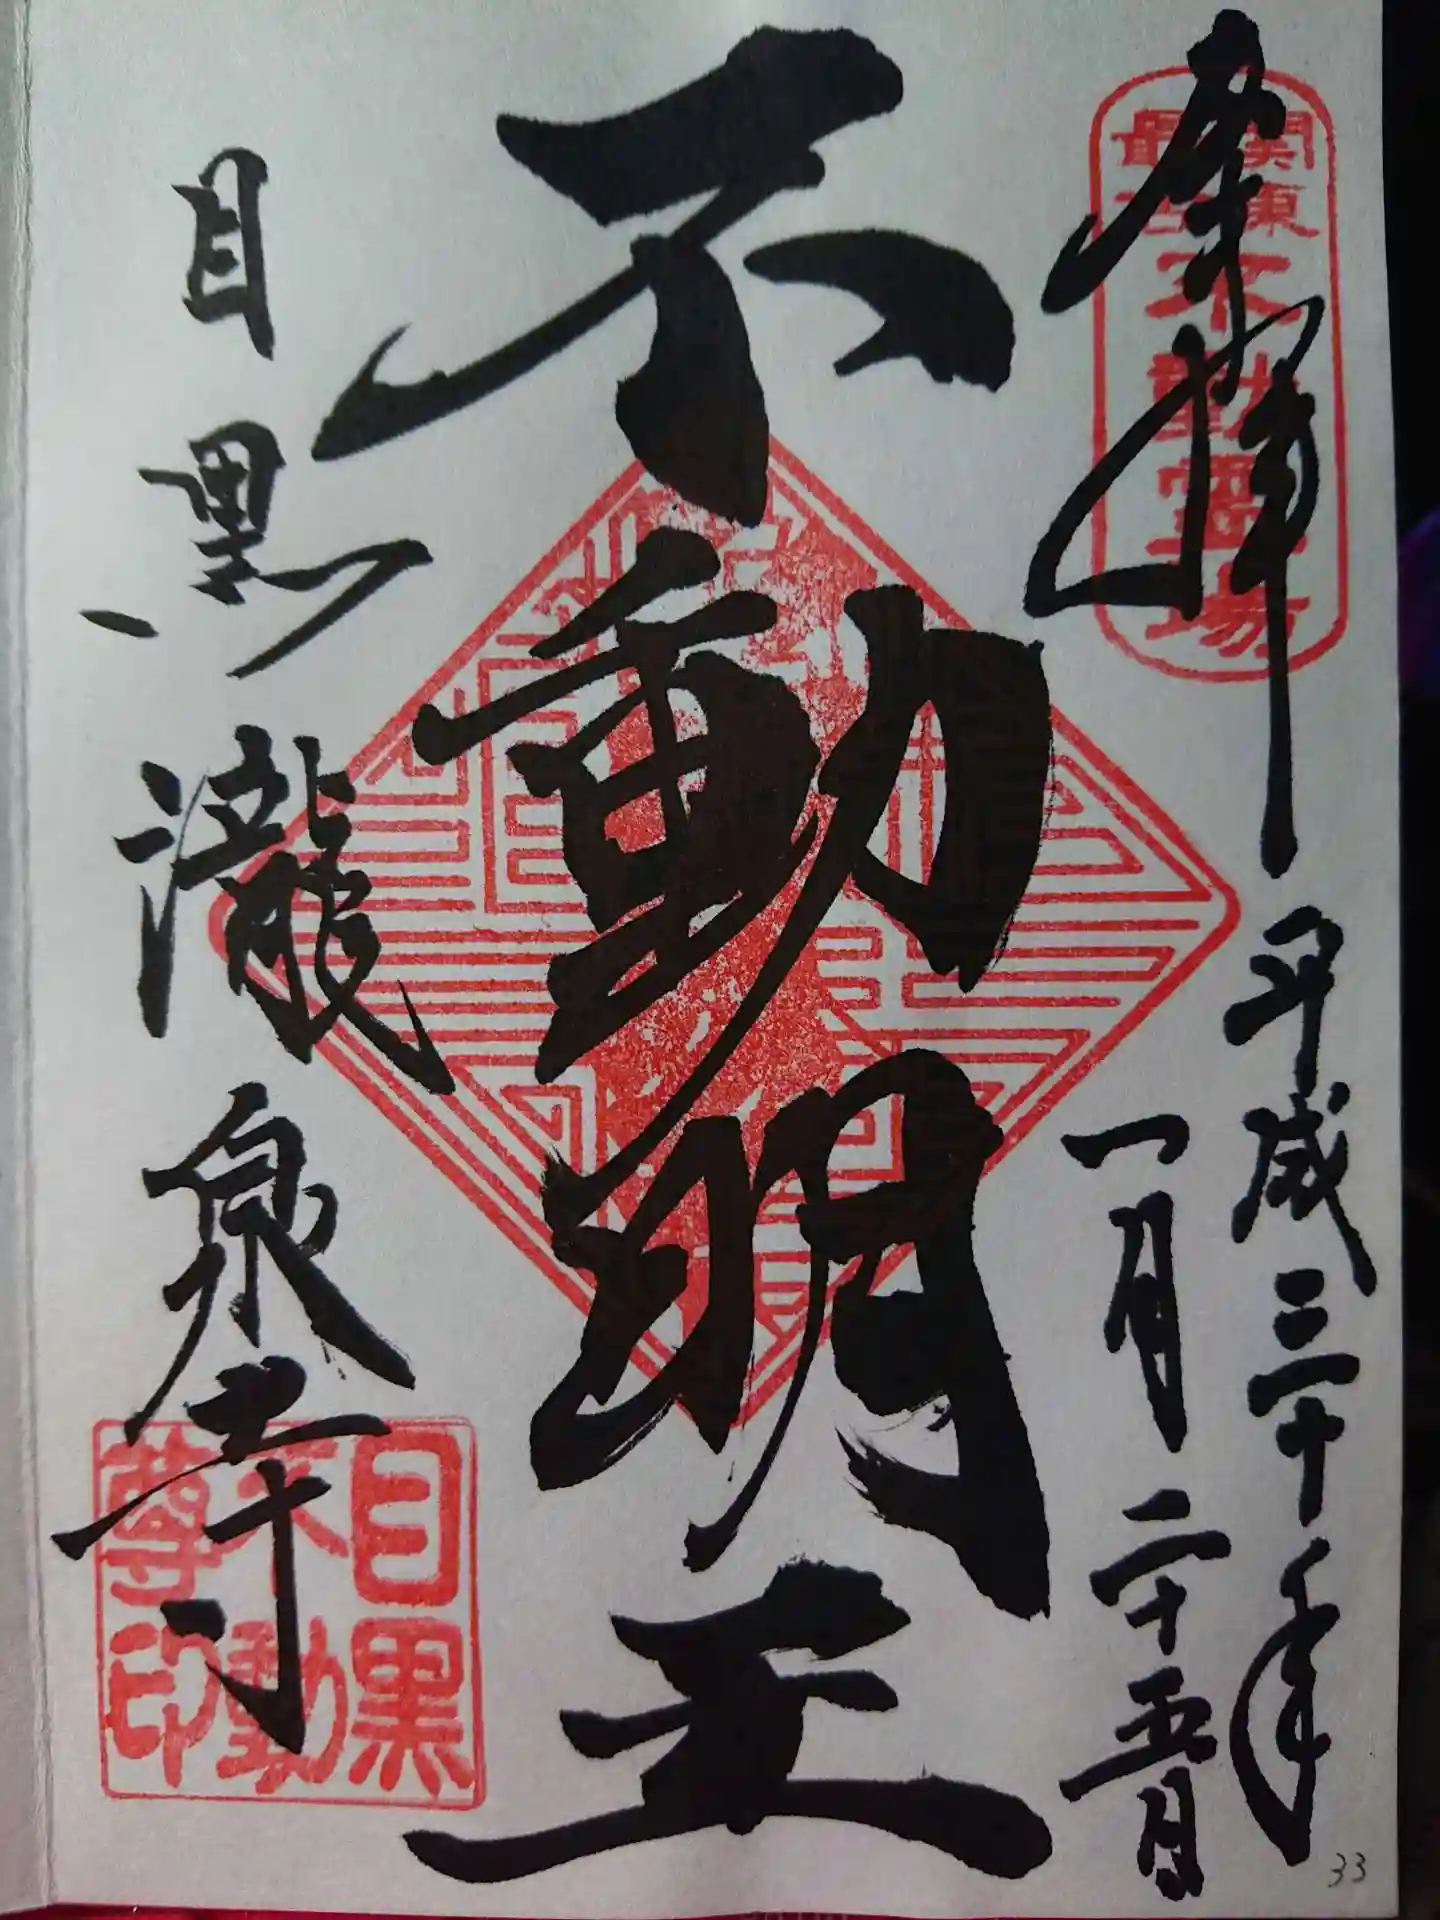 奉拝
関東
最古
不動霊場
平成三十年
一月二十五日
不動明王
目黒瀧泉寺
目黒
不動
尊印
33